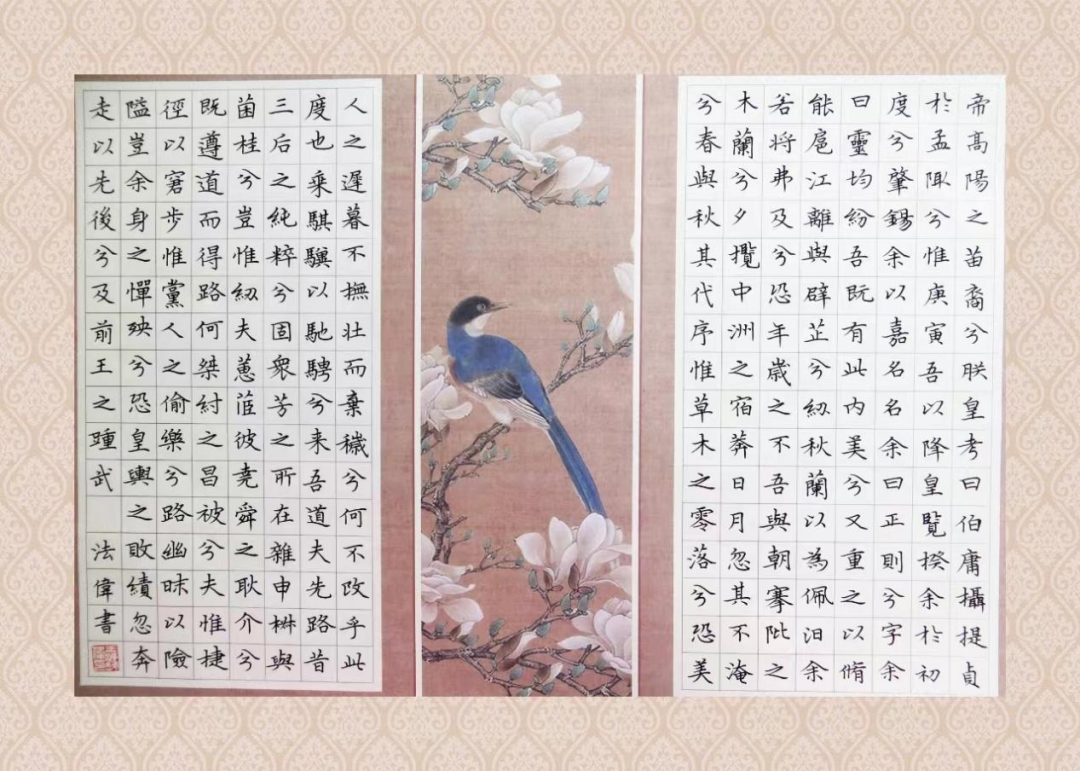 帝髙陽之苗裔兮朕皇考曰伯庸攝提貞
於孟陬兮惟庚寅吾以降皇覽揆余於初
度兮肇錫余以嘉名名余曰正則兮字余
曰靈均紛吾既有此内美兮又重之以脩
能扈江離與辟芷兮紉秋蘭以為佩汩余
若將弗及兮恐年歲之不吾與朝搴阰之
木蘭兮夕攬中洲之宿莽日月忽其不淹
兮春與秋其代序惟草木之零落兮恐美
人之遲暮不撫壯而棄穢兮何不改乎此
度也乘騏驥以馳騁兮来吾道夫先路昔
三后之純粹兮固衆芳之所在雜申椒與
菌桂兮豈惟紉夫蕙茝彼堯舜之耿介兮
既遵道而得路何桀紂之昌被兮夫惟捷
徑以窘步惟黨人之偷樂兮路幽昧以險
隘豈余身之憚殃兮恐皇輿之敗績忽奔
走以先後兮及前王之踵武 法偉書